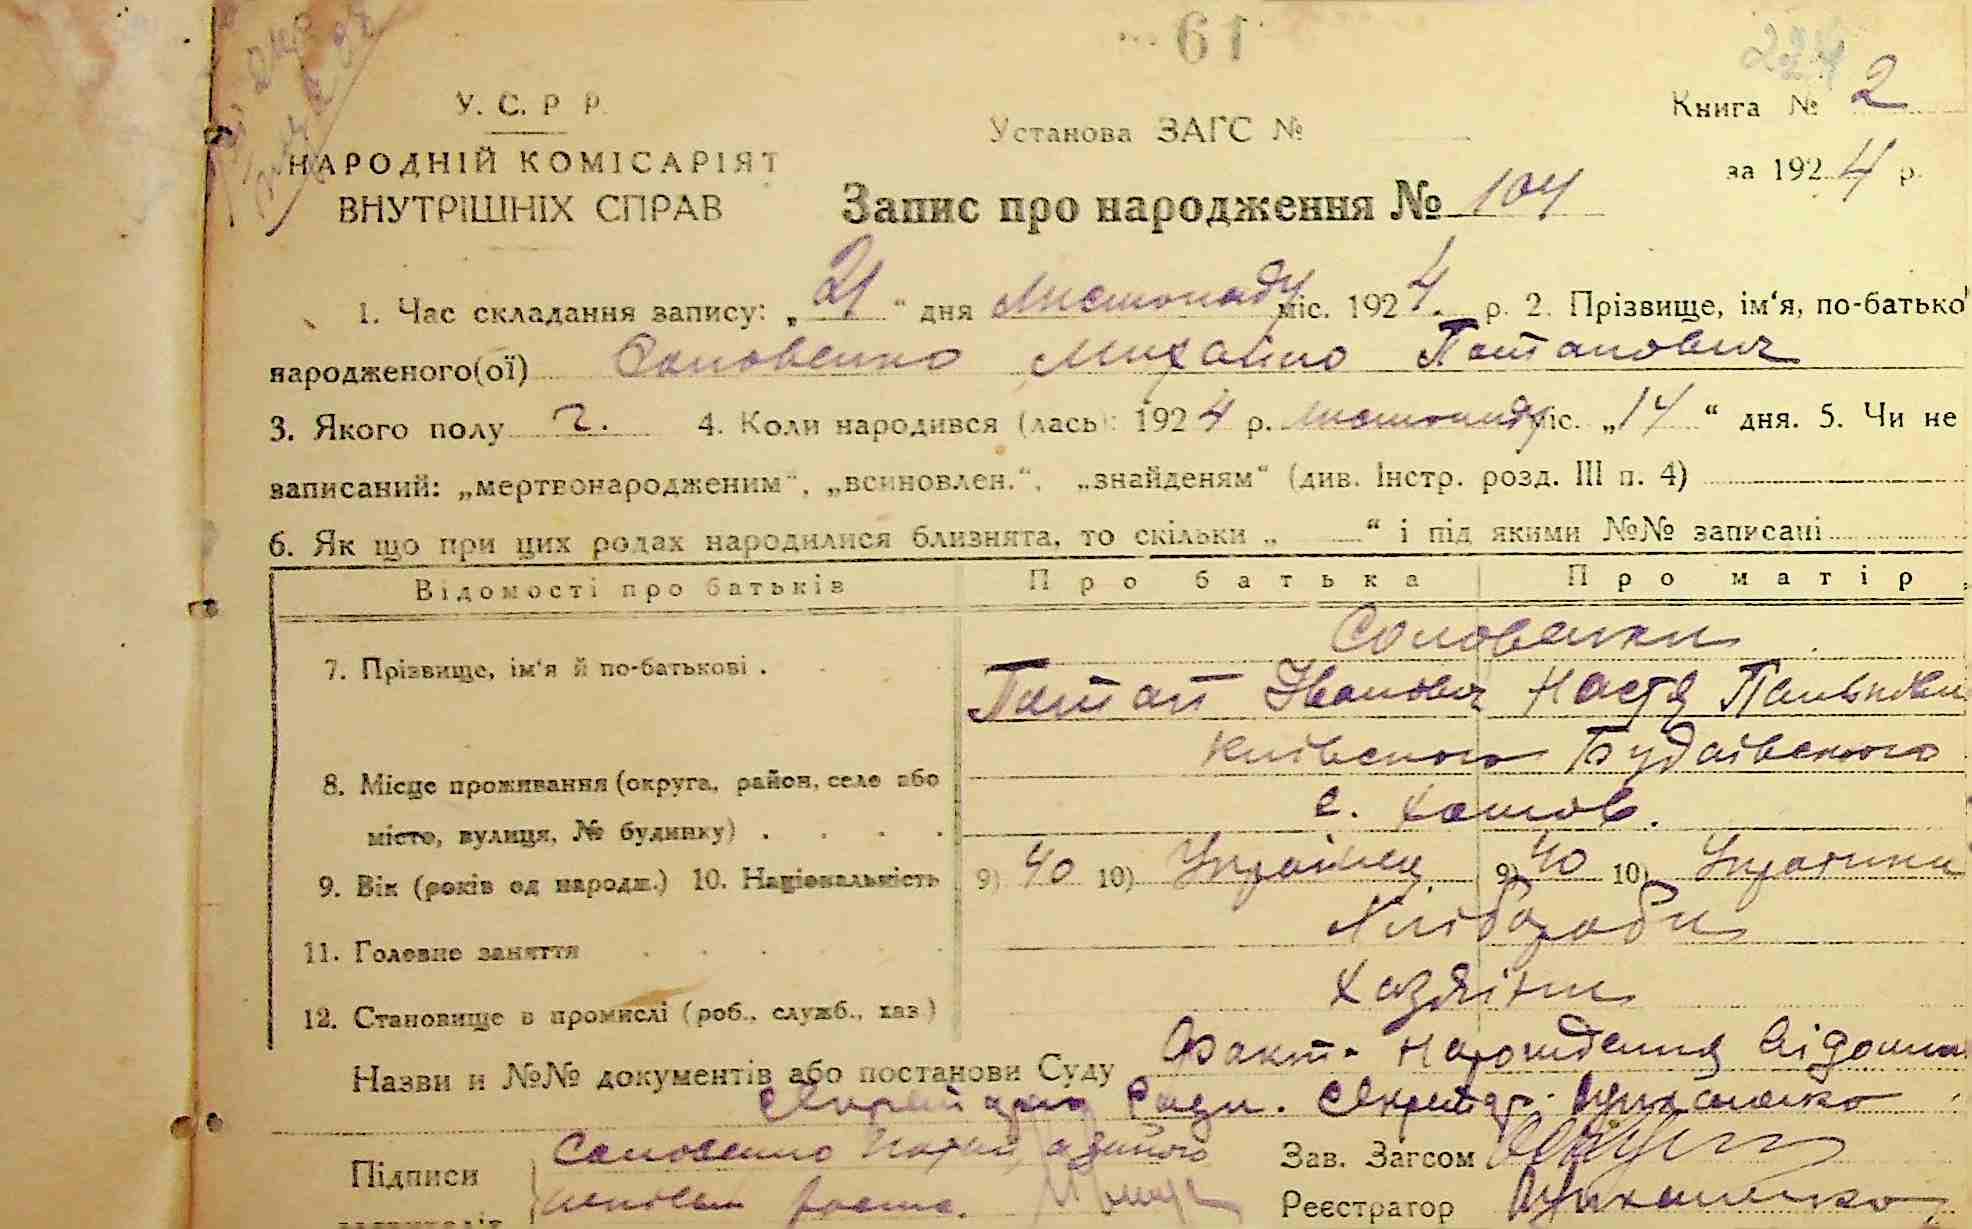 61
У. С. Р. Р.
НАРОДНІЙ КОМІСАРІЯТ
ВНУТРІШНІХ СПРАВ
Установа ЗАГС №
Книга № 2
за 1924 р.
Запис про народження № 104
1. Час складання запису: „21“ дня Листопаду міс. 1924 р. 2. Прізвище, ім‘я, по-батькові
народженого(ої) Соловенко Михайло Потапович
3. Якого полу ч. 4. Коли народився (лась): 1924 р. листопаду міс. „14“ дня. 5. Чи не
записаний: „мертвонародженим“, „всиновлен.“, „знайденям“ (див. Інстр. розд. III п. 4)
6. Як що при цих родах народилися близнята, то скільки „ “ і під якими №№ записані
Відомості про батьків Про батька Про матір
Соловенки
7. Прізвище, ім‘я й по-батькові . Потап Іванович Настя
Київського Будаївського
8. Місце проживання (округа, район, село або
місто, вулиця, № будинку) . . . . с. Хотов.
9. Вік (років од народж.) 10. Національність 9) 40 10) Українец 9) 40 10) Українка
11. Головне заняття . . . . . Хлібороби
12. Становище в промислі (роб., служб., хаз.) Хазяіни
Назви и №№ документів або постанови Суду Факт народження відомий
секретарю Ради. Секретар
Підписи Соловенко Потап, а за його
Зав. Загсом
Реєстратор